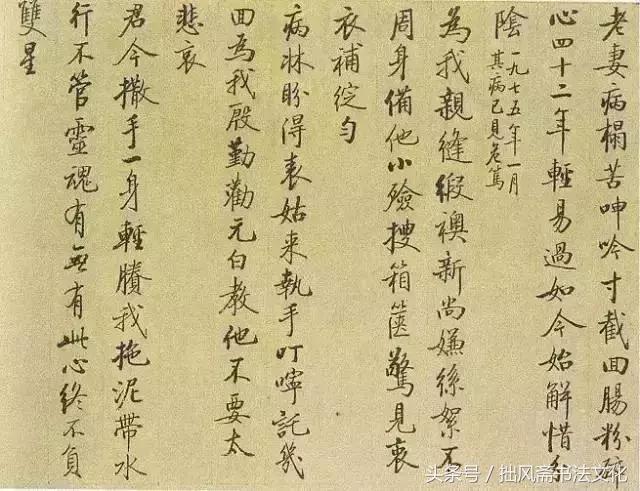 老妻病榻苦呻吟寸截回腸粉碎
心四十二年輕易過如今始解惜分
陰
一九七五年一月
其病已見危篤
為我親縫緞襖新尚嫌絲絮不
周身備他小殮搜箱篋驚見衷
衣補綻勻
病牀盼得表姑来執手叮嚀託幾
回為我殷勤勸元白教他不要太
悲哀
君今撒手一身輕賸我拖泥帶水
行不管靈魂有無有此心終不負
雙星
头条号 / 拙风斋书法文化